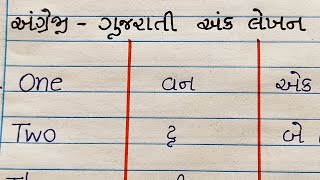 અંગ્રેજી - ગુજરાતી અંક લેખન
One વન એક
Two ટુ બે